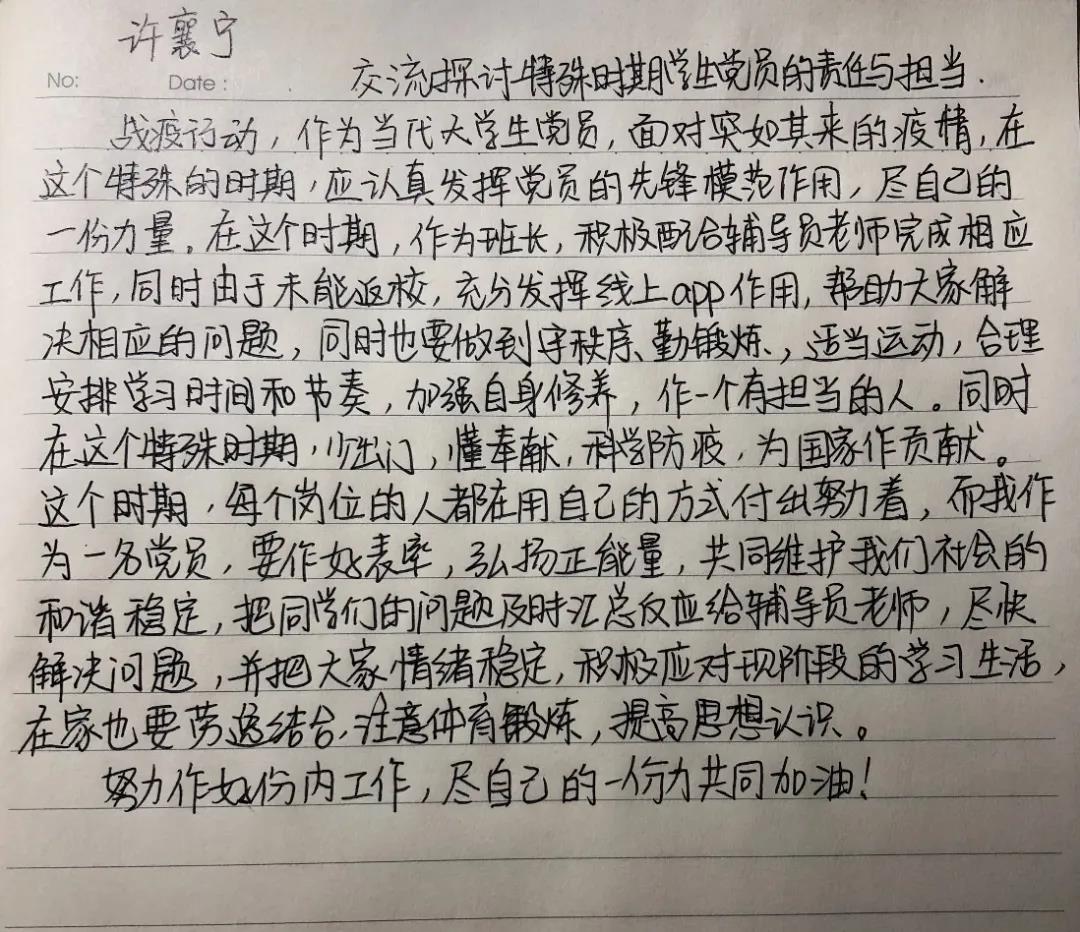 许襄宁
No: Date:
交流探讨特殊时期学生党员的责任与担当.
战疫行动，作为当代大学生党员，面对突如其来的疫情，在
这个特殊的时期，应认真发挥党员的先锋模范作用，尽自己的
一份力量。在这个时期，作为班长，积极配合辅导员老师完成相应
工作，同时由于未能返校，充分发挥线上app作用，帮助大家解
决相应的问题，同时也要做到守秩序、勤锻炼、，适当运动，合理
安排学习时间和节奏，加强自身修养，作一个有担当的人。同时
在这个特殊时期，少出门，懂奉献，科学防疫，为国家作贡献。
这个时期，每个岗位的人都在用自己的方式付出努力着，而我作
为一名党员，要作好表率，弘扬正能量，共同维护我们社会的
和谐稳定，把同学们的问题及时汇总反应给辅导员老师，尽快
解决问题，并把大家情绪稳定，积极应对现阶段的学习生活，
在家也要劳逸结合，注意体育锻炼，提高思想认识。
努力作好份内工作，尽自己的一份力共同加油！